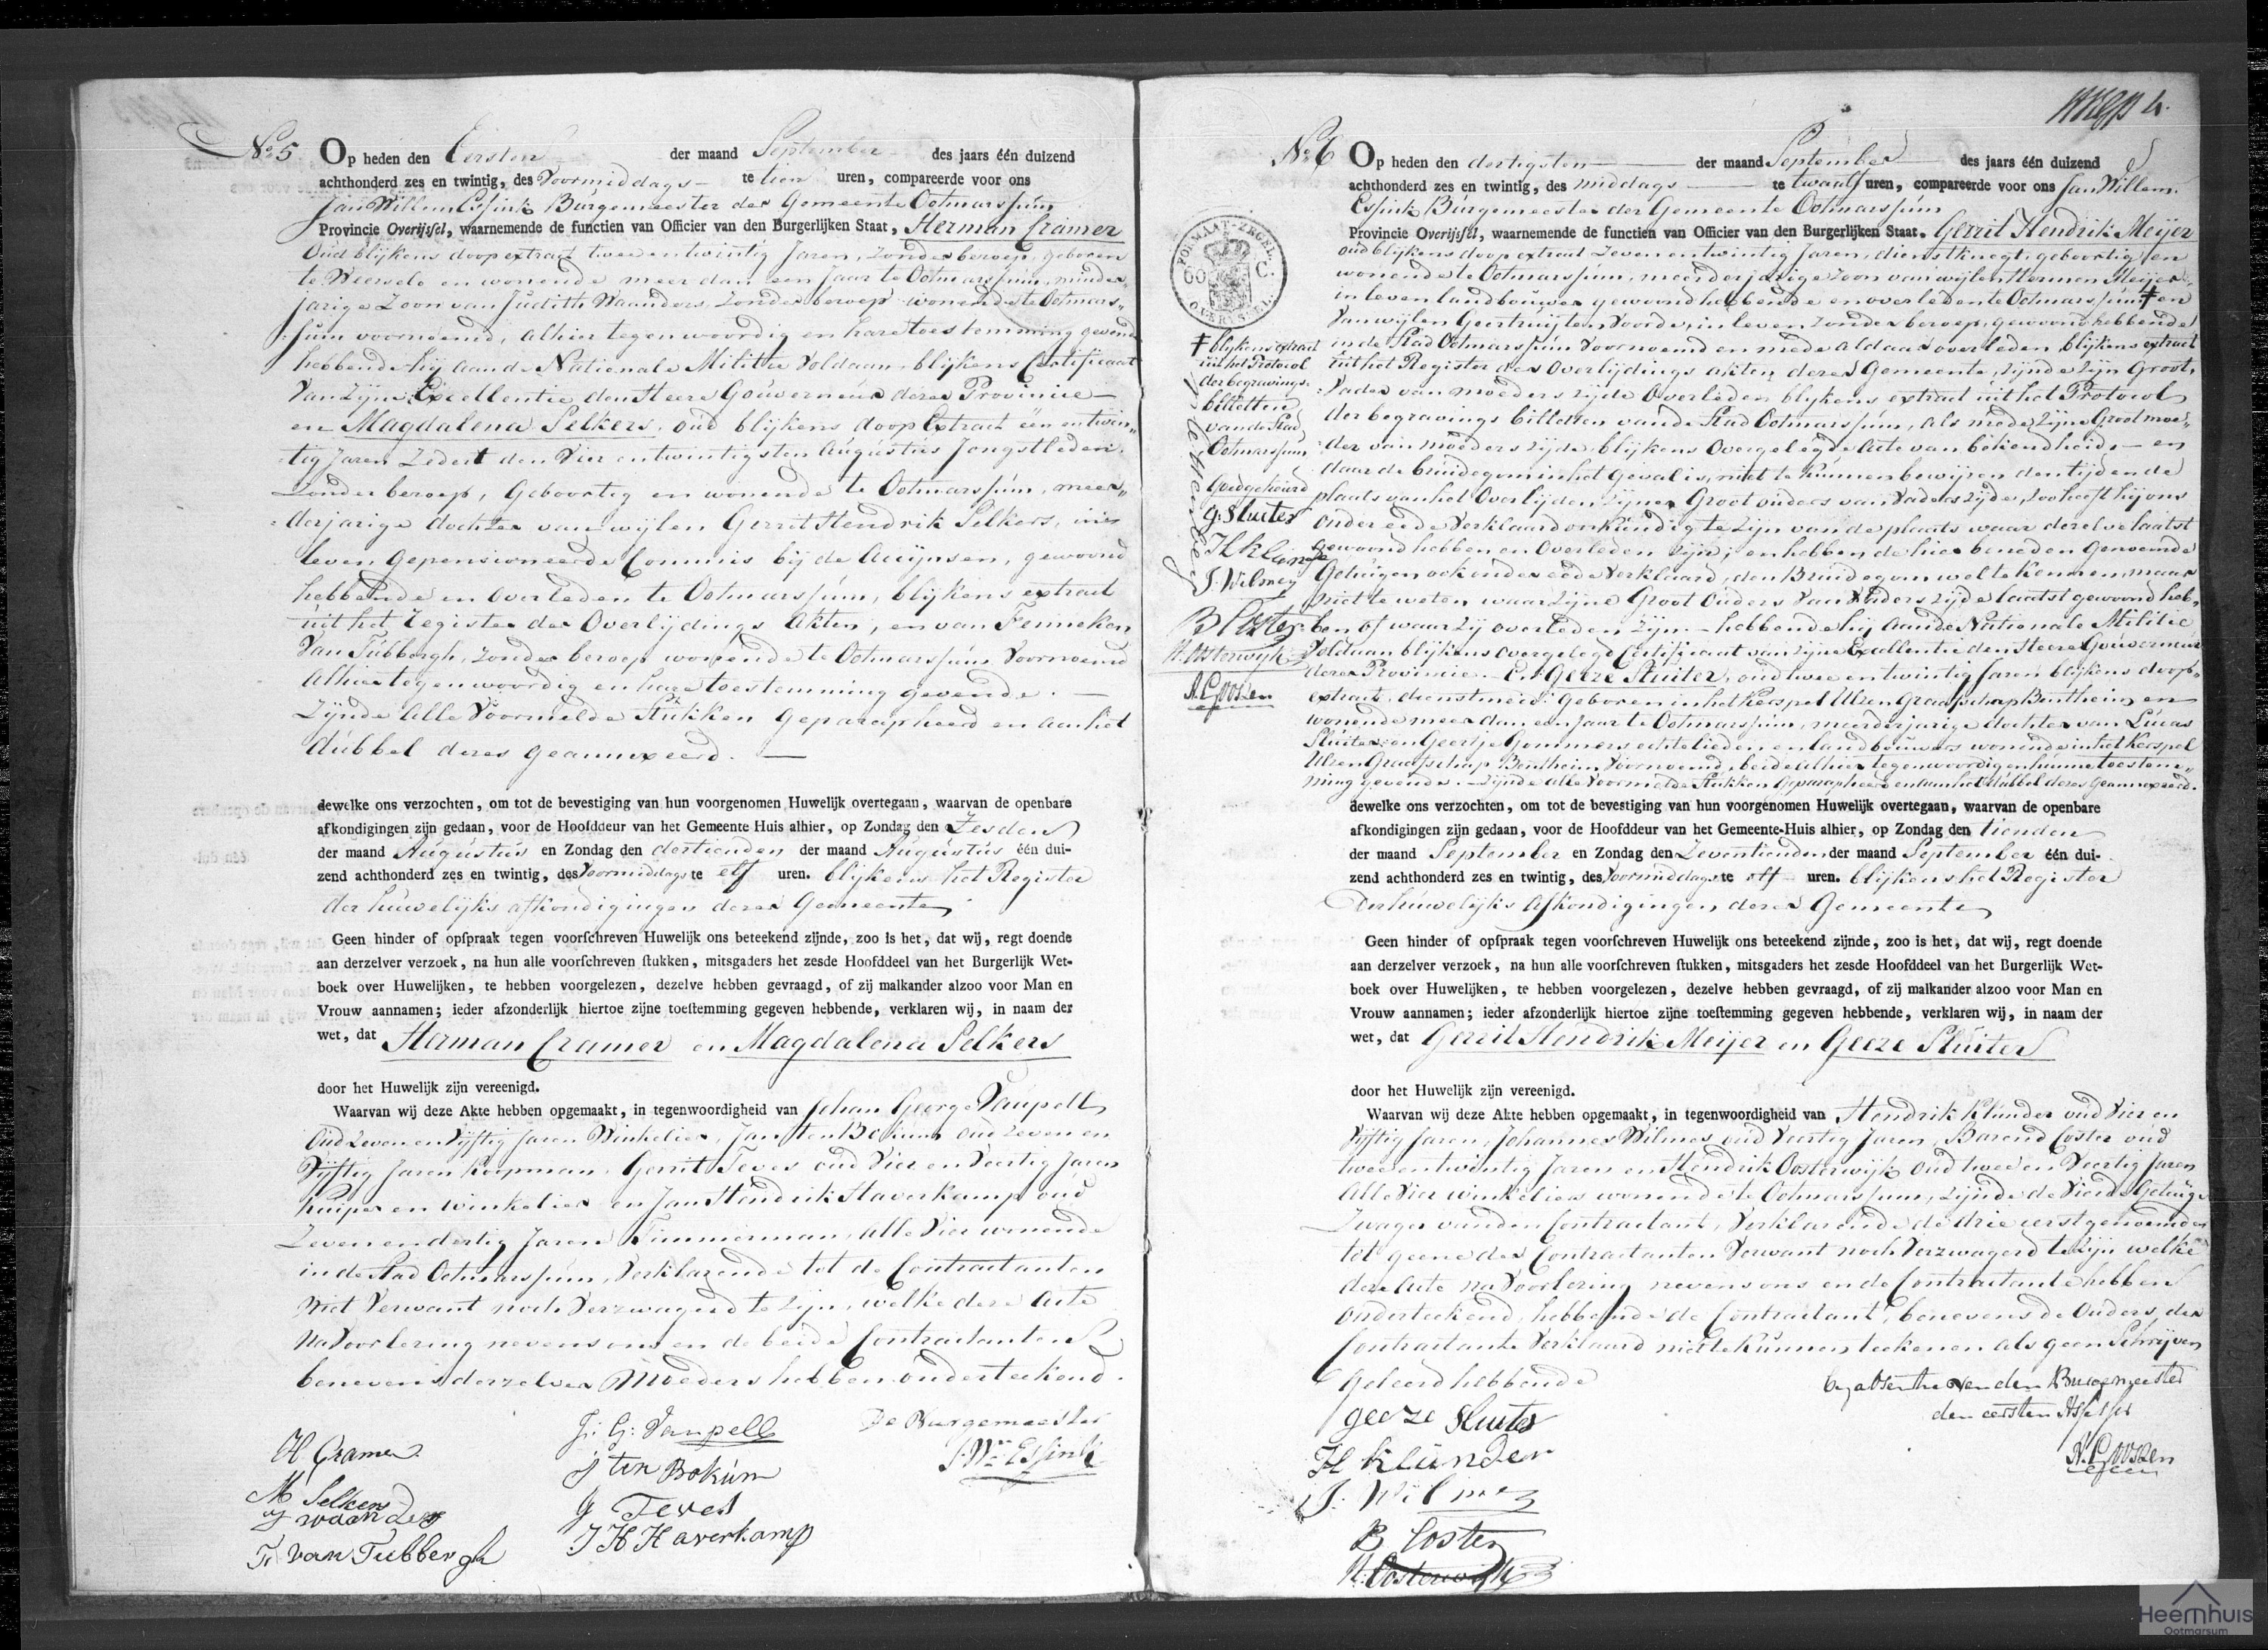 No 5 Op heden den Eersten der maand September des jaars één duizend
achthonderd zes en twintig, des Voormiddags te tien uren, compareerde voor ons
Jan Willem Essink Burgemeester der Gemeente Ootmarssum
Provincie Overijssel, waarnemende de functien van Officier van den Burgerlijken Staat, Herman Cramer
Oud blijkens doop extract twee en twintig Jaren, zonder beroep, geboren
te Weerselo en wonende meer dan een Jaar te Ootmarssum, minder„
jarige Zoon van Judith Waanders zonder beroep wonende te Ootmars„
sum voornoemd, alhier tegenwoordig en hare toestemming gevende
hebbende hij aan de Nationale Militie Voldaan, blijkens Certificaat
Van Zijne Excellentie den Heere Gouverneur dezer Provincie –
en Magdalena Selkers, oud blijkens doop Extract een en twin„
tig Jaren Zedert den Vier en twintigsten Augustus Jongstleden,
Zonder beroep, Geboortig en wonende te Ootmarssum, meer„
derjarige dochter van wijlen Gerrit Hendrik Selkers, in
leven gepensioneerde Commis bij de , gewoond
hebbende en overleden te Ootmarssum, blijkens extract
uit het Register der Overlijdings Akten, en van Fenneken
Van Tubbergh, zonder beroep wonende te Ootmarssum Voornoemd
Alhier tegenwoordig en hare toestemming gevende. –
Zijnde Alle Voormelde Stukken geparapheerd en aan het
dubbel dezes geannexeerd. –
dewelke ons verzochten, om tot de bevestiging van hun voorgenomen Huwelijk overtegaan, waarvan de openbare
afkondigingen zijn gedaan, voor de Hoofddeur van het Gemeente Huis alhier, op Zondag den Zesden
der maand Augustus en Zondag den dertienden der maand Augustus één dui-
zend achthonderd zes en twintig, des Voormiddags te elf uren. blijkens het Register
der huwelijks afkondigingen dezer Gemeente
Geen hinder of opspraak tegen voorschreven Huwelijk ons beteekend zijnde, zoo is het, dat wij, regt doende
aan derzelver verzoek, na hun alle voorschreven stukken, mitsgaders het zesde Hoofddeel van het Burgerlijk Wet-
boek over Huwelijken, te hebben voorgelezen, dezelve hebben gevraagd, of zij malkander alzoo voor Man en
Vrouw aannamen; ieder afzonderlijk hiertoe zijne toestemming gegeven hebbende, verklaren wij, in naam der
wet, dat Herman Cramer en Magdalena Selkers
door het Huwelijk zijn vereenigd.
Waarvan wij deze Akte hebben opgemaakt, in tegenwoordigheid van Johan George Vaupell
Oud Zeven en Vijftig Jaren Winkelier, Jan ten Bokum oud Zeven en
Vijftig Jaren Koopman, Gerrit Teves oud Vier en Veertig Jaren
Kuiper en winkelier en Jan Hendrik Haverkamp oud
Zeven en dertig Jaren Timmerman, alle Vier wonende
in de Stad Ootmarssum, Verklarende tot de Contractanten
Niet Verwant noch Verzwagerd te zijn, welke deze Acte
na Voorlezing nevens ons en de beide Contractanten
benevens derzelver Moeders hebben onderteekend.
H Cramer
M Selkers
J waanders
F: van Tubbergh
J: G: Vaupell
J ten Bokum
G Teves
J H Haverkamp
De Burgemeester
J. Wm Essink
No 6 Op heden den dertigsten der maand September des jaars één duizend
achthonderd zes en twintig, des middags te twaalf uren, compareerde voor ons Jan Willem
Essink Burgemeester der Gemeente Ootmarssum
Provincie Overijssel, waarnemende de functien van Officier van den Burgerlijken Staat. Gerrit Hendrik Meijer
oud blijkens doop extract Zeven en twintig Jaren, dienstknegt, geboortig en
wonende te Ootmarssum, meerderjarige Zoon van wijlen Hermen Meijer
in leven landbouwer gewoond hebbende en overleden te Ootmarssum † en
Van wijlen Geertruij ten Voorde, in leven zonder beroep, gewoond hebbende
in de Stad Ootmarssum Voornoemd en mede aldaar overleden blijkens extract
uit het Register der Overlijdings akten dezer Gemeente, zijnde zijn Groot,
Vader van moeders zijde Overleden blijkens extract uit het Protocol
der begravings billetten van de Stad Ootmarssum, als mede zijne Grootmoe„
der van moeders zijde blijkens Overgelegde Acte van bekendheid, – en
daar de bruidegom in het geval is, niet te kunnen bewijzen den tijd en de
plaats van het Overlijden zijner Groot ouders van Vaders zijde, zoo heeft hij ons
onder eede Verklaard onkundig te zijn van de plaats waar dezelve laatst
gewoond hebben en Overleden zijn; en hebben de hier beneden genoemde
Getuigen ook onder eede Verklaard, den Bruidegom wel te kennen maar
niet te weten waar zijne Groot Ouders Van Vaders zijde laatst gewoond heb„
ben of waar zij overleden zijn – hebbende hij aan de Nationale Militie
Voldaan blijkens overgelegd Certificaat van zijne Excellentie den Heere Gouverneur
dezer Provincie. – En Geeze Sluiter, oud twee en twintig Jaren blijkens doop„
extract, dienstmeid, Geboren in het Kerspel Ulzen Graafschap Bentheim en
wonende meer dan een Jaar te Ootmarssum, meerderjarige dochter van Lucas
Sluiter en Geertje Gommers echtelieden, en landbouwers wonende in het Kerspel
Ulzen Graafschap Bentheim Voornoemd, beide alhier tegenwoordig en hunne toestem„
ming gevende. – Zijnde alle Voormelde Stukken Geparapheerd en aan het dubbel dezes Geannexeerd.
† blijkens extract
uit het Protocol
der begravings-
billetten
van de Stad
Ootmarssum
Goedgekeurd
G. Sluiter
H Klunder
J. Wilmes
B Coster
H. Oosterwijk
A. Goossen
FORMAAT-ZEGEL.
60 C.
OVERYSSEL.
dewelke ons verzochten, om tot de bevestiging van hun voorgenomen Huwelijk overtegaan, waarvan de openbare
afkondigingen zijn gedaan, voor de Hoofddeur van het Gemeente-Huis alhier, op Zondag den tienden
der maand September en Zondag den Zeventienden der maand September één dui-
zend achthonderd zes en twintig, des Voormiddags te elf uren. blijkens het Register
der huwelijks Afkondigingen dezer Gemeente
Geen hinder of opspraak tegen voorschreven Huwelijk ons beteekend zijnde, zoo is het, dat wij, regt doende
aan derzelver verzoek, na hun alle voorschreven stukken, mitsgaders het zesde Hoofddeel van het Burgerlijk Wet-
boek over Huwelijken, te hebben voorgelezen, dezelve hebben gevraagd, of zij malkander alzoo voor Man en
Vrouw aannamen; ieder afzonderlijk hiertoe zijne toestemming gegeven hebbende, verklaren wij, in naam der
wet, dat Gerrit Hendrik Meijer en Geeze Sluiter
door het Huwelijk zijn vereenigd.
Waarvan wij deze Akte hebben opgemaakt, in tegenwoordigheid van Hendrik Klunder oud Vier en
Vijftig Jaren, Johannes Wilmes oud Veertig Jaren, Barend Coster oud
twee en twintig Jaren en Hendrik Oosterwijk oud twee en Veertig Jaren
Alle Vier winkeliers wonende te Ootmarssum, zijnde de Vierde Getuige
Zwager van den Contractant, Verklarende de drie eerstgenoemden
tot geene der Contractanten Verwant noch Verzwagerd te zijn welke
deze Acte na Voorlezing nevens ons en de Contractante hebben
onderteekend, hebbende de Contractant, benevens de Ouders der
Contractante Verklaard niet te kunnen teekenen als geen Schrijven
Geleerd hebbende
geeze Sluiter
H Klunder
J. Wilmes
B Coster
H. Oosterwijk
by absentie van den Burgemeester
den eersten Assessor
A. Goossen
Heemhuis
Ootmarsum